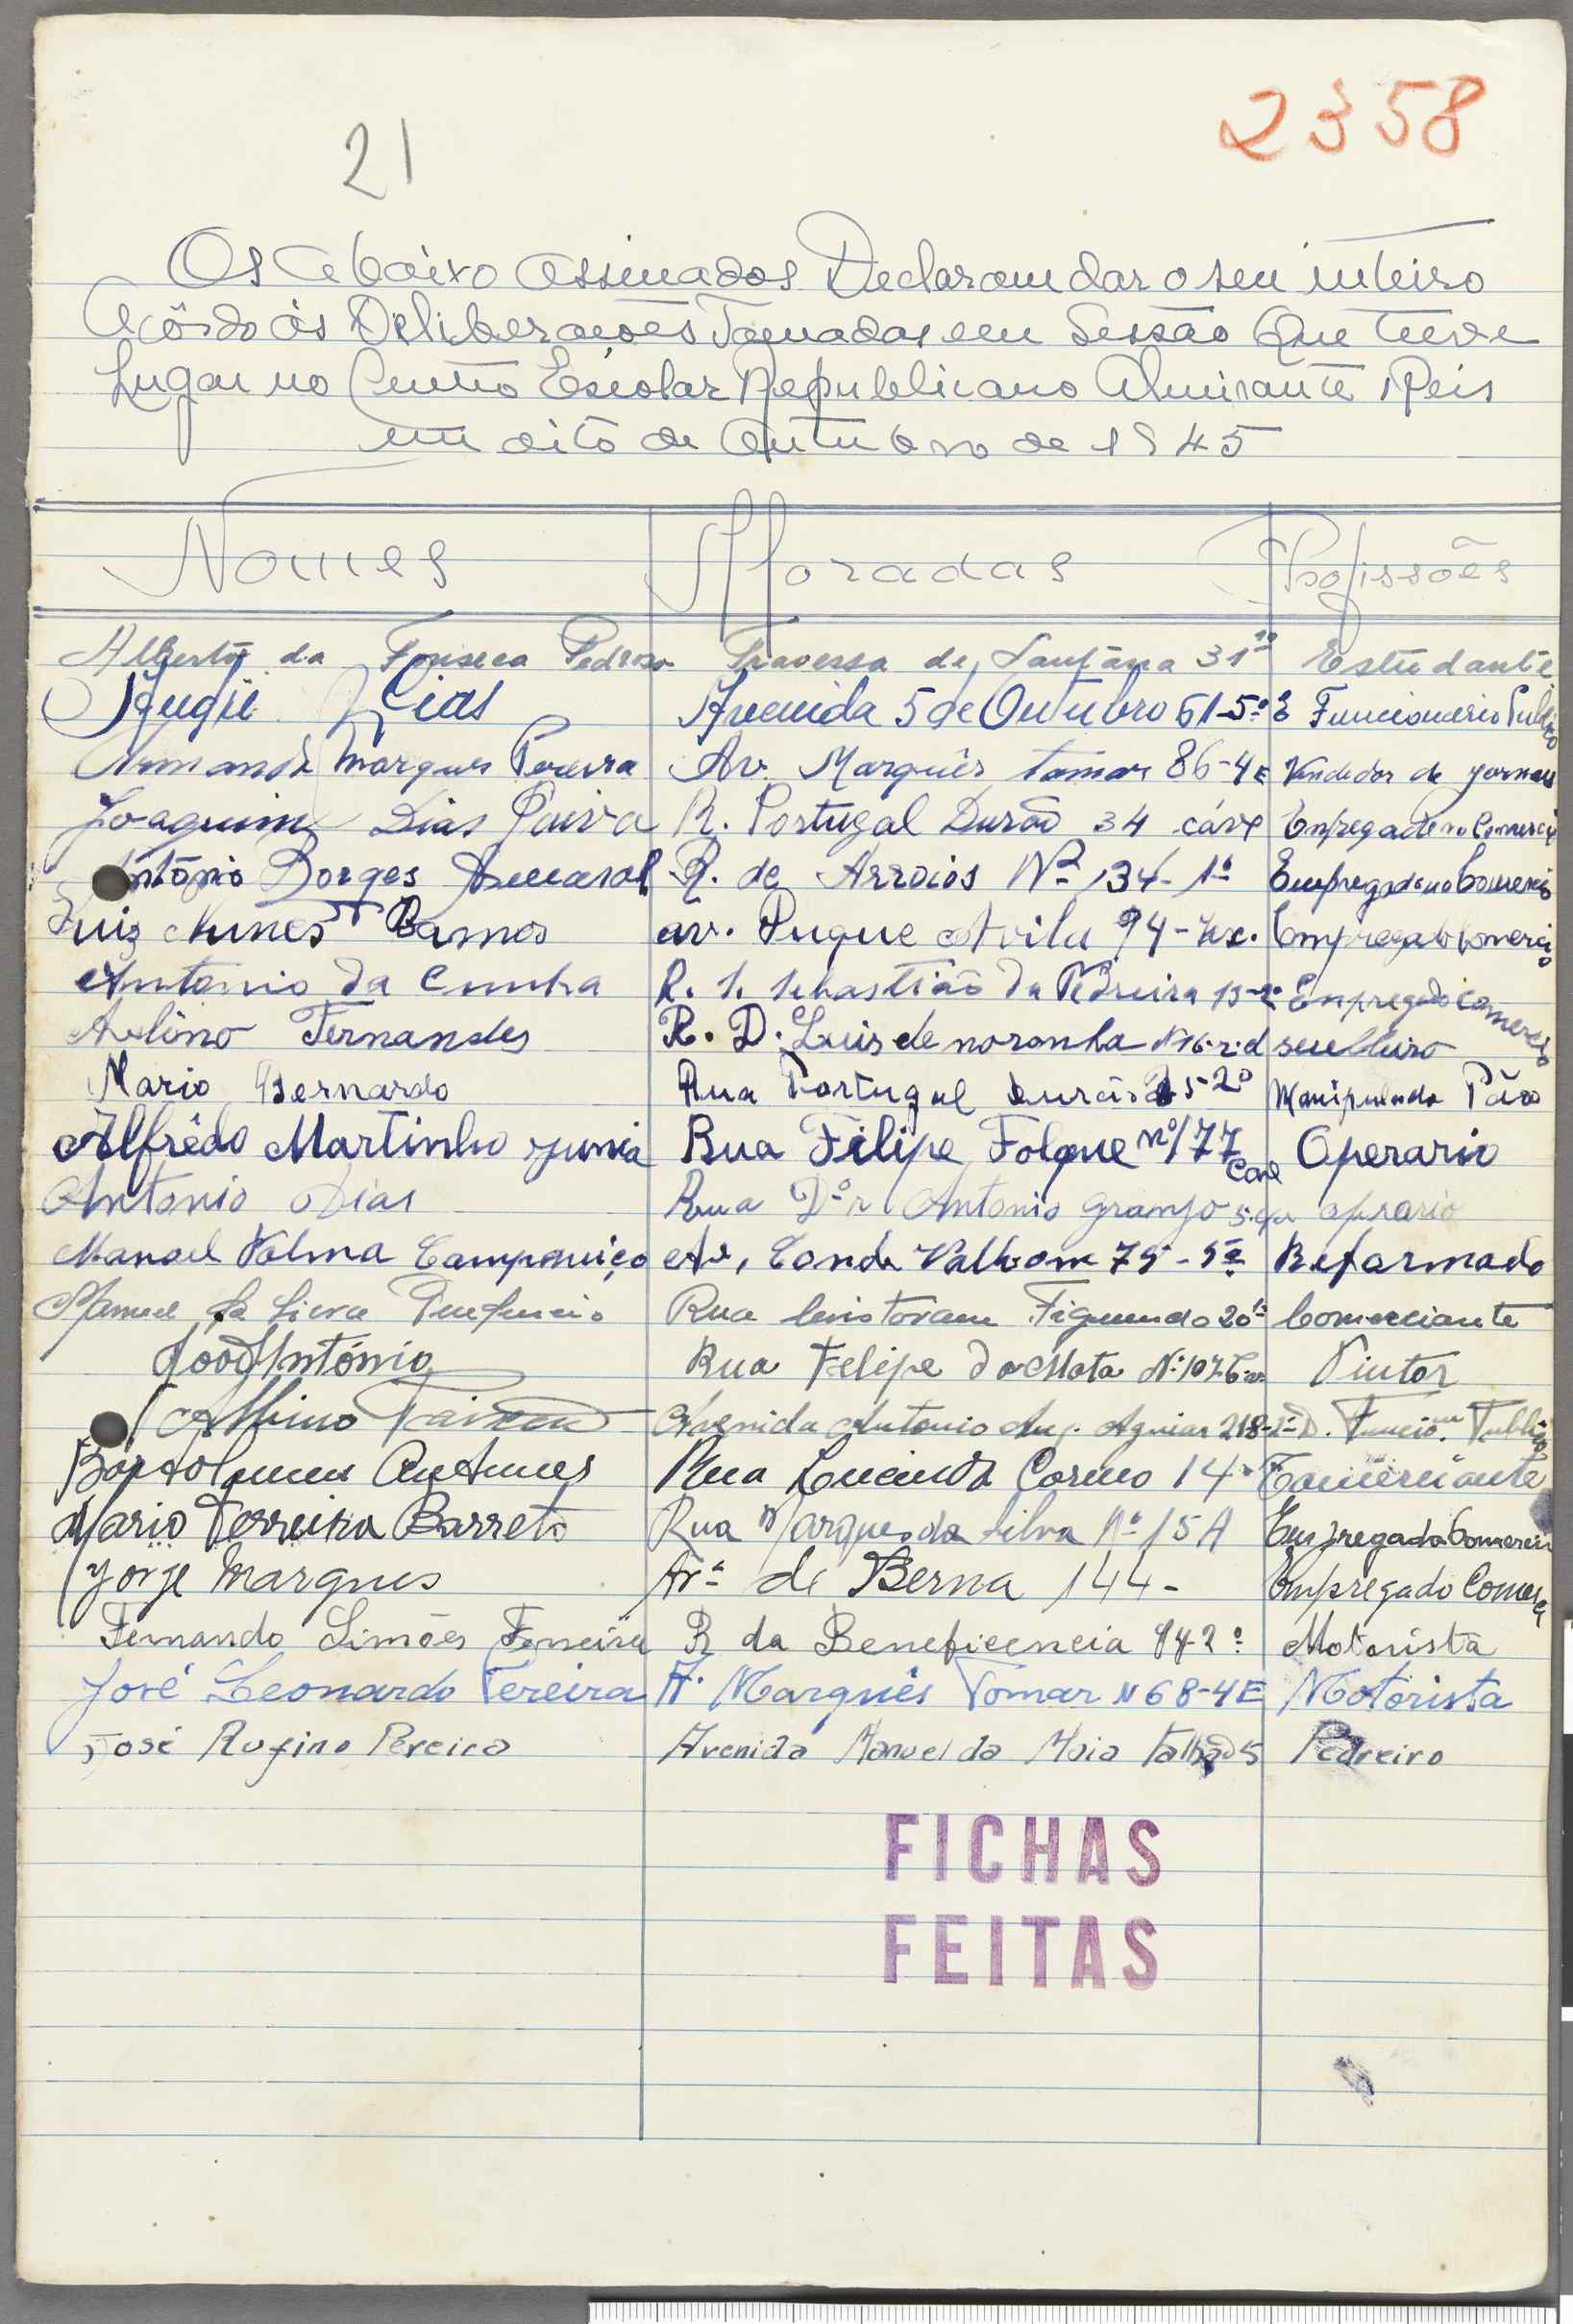 21
2358
Os abaixo assinados Declaram dar o seu inteiro
acôrdo ás Deliberações Tomadas em Sessão Que teve
Lugar no Centro Escolar Republicano Almirante Reis
em oito de Outubro de 1945
Nomes Moradas Profissões
Alberto da Fonseca Pedroso Travessa de Santana 31 Estudante
Dias Avenida 5 de Outubro 61-5º E Funcionario Publico
Armando Marques Pereira Av. Marquês tomar 86-4 E Vendedor de jornais
Joaquim Dias Paiva R. Portugal Durão 34 cáve Empregado no Comercio
António Borges Amaral R. de Arroios Nº 134-1º Empregado no Comercio
Luiz Nunes Ramos av. Duque Avila 94 Empregado Comercio
Antonio da Cunha R. S. Sebastião da Pedreira Empregado Comercio
Avelino Fernandes R. D. Luis de noronha
Mario Bernardo Rua Portugal Durão 5-2º Manipulado Pão
Alfrêdo Martinho Rua Filipe Folque nº 77 Cave Operario
Antonio Dias Rua Dºr Antonio Granjo oprario
Manoel Palma Campaniço Av, Conde Valbom 75-5º Reformado
Manuel da Rua Cristovam Figueiredo 20 Comerciante
João António Rua Felipe da Mata Nº 107 Pintor
Albino Avenida Antonio Aug. Aguiar 218 Funcio. Publico
Bartolomeu Antunes Rua Lucinda Carmo 14 Comerciante
Mario Ferreira Barreto Rua Marques da Silva Nº 15 A Empregado Comercio
Jorge Marques Avª de Berna 144- Empregado Comerc
Fernando Simões Ferreira R da Beneficencia 94-2º Motorista
José Leonardo Pereira A. Marquês Tomar N 68-4 E Motorista
José Rufino Pereira Avenida Manuel da Maia talhão 5 Pedreiro
FICHAS
FEITAS